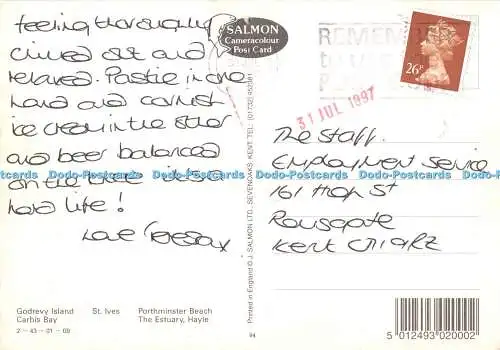 feeling thoroughly
chilled out and
relaxed. Pastie in one
hand and cornish
ice cream in the other
and beer balanced
on the knee it's a
hard life!
Love Teresa x
Godrevy Island St. Ives Porthminster Beach
Carbis Bay The Estuary, Hayle
2-43-01-09
SALMON
Cameracolour
Post Card
Printed in England © J. SALMON LTD., SEVENOAKS, KENT. TEL: (01732) 452381
94
REMEMBER
to USE
31 JUL 1997
26P
The Staff.
Employment Service
161 High St
Ramsgate
Kent
5 012493 020002
Dodo-Postcards Dodo-Postcards Dodo-Postcards Dodo-Postcards Dodo-Postcards